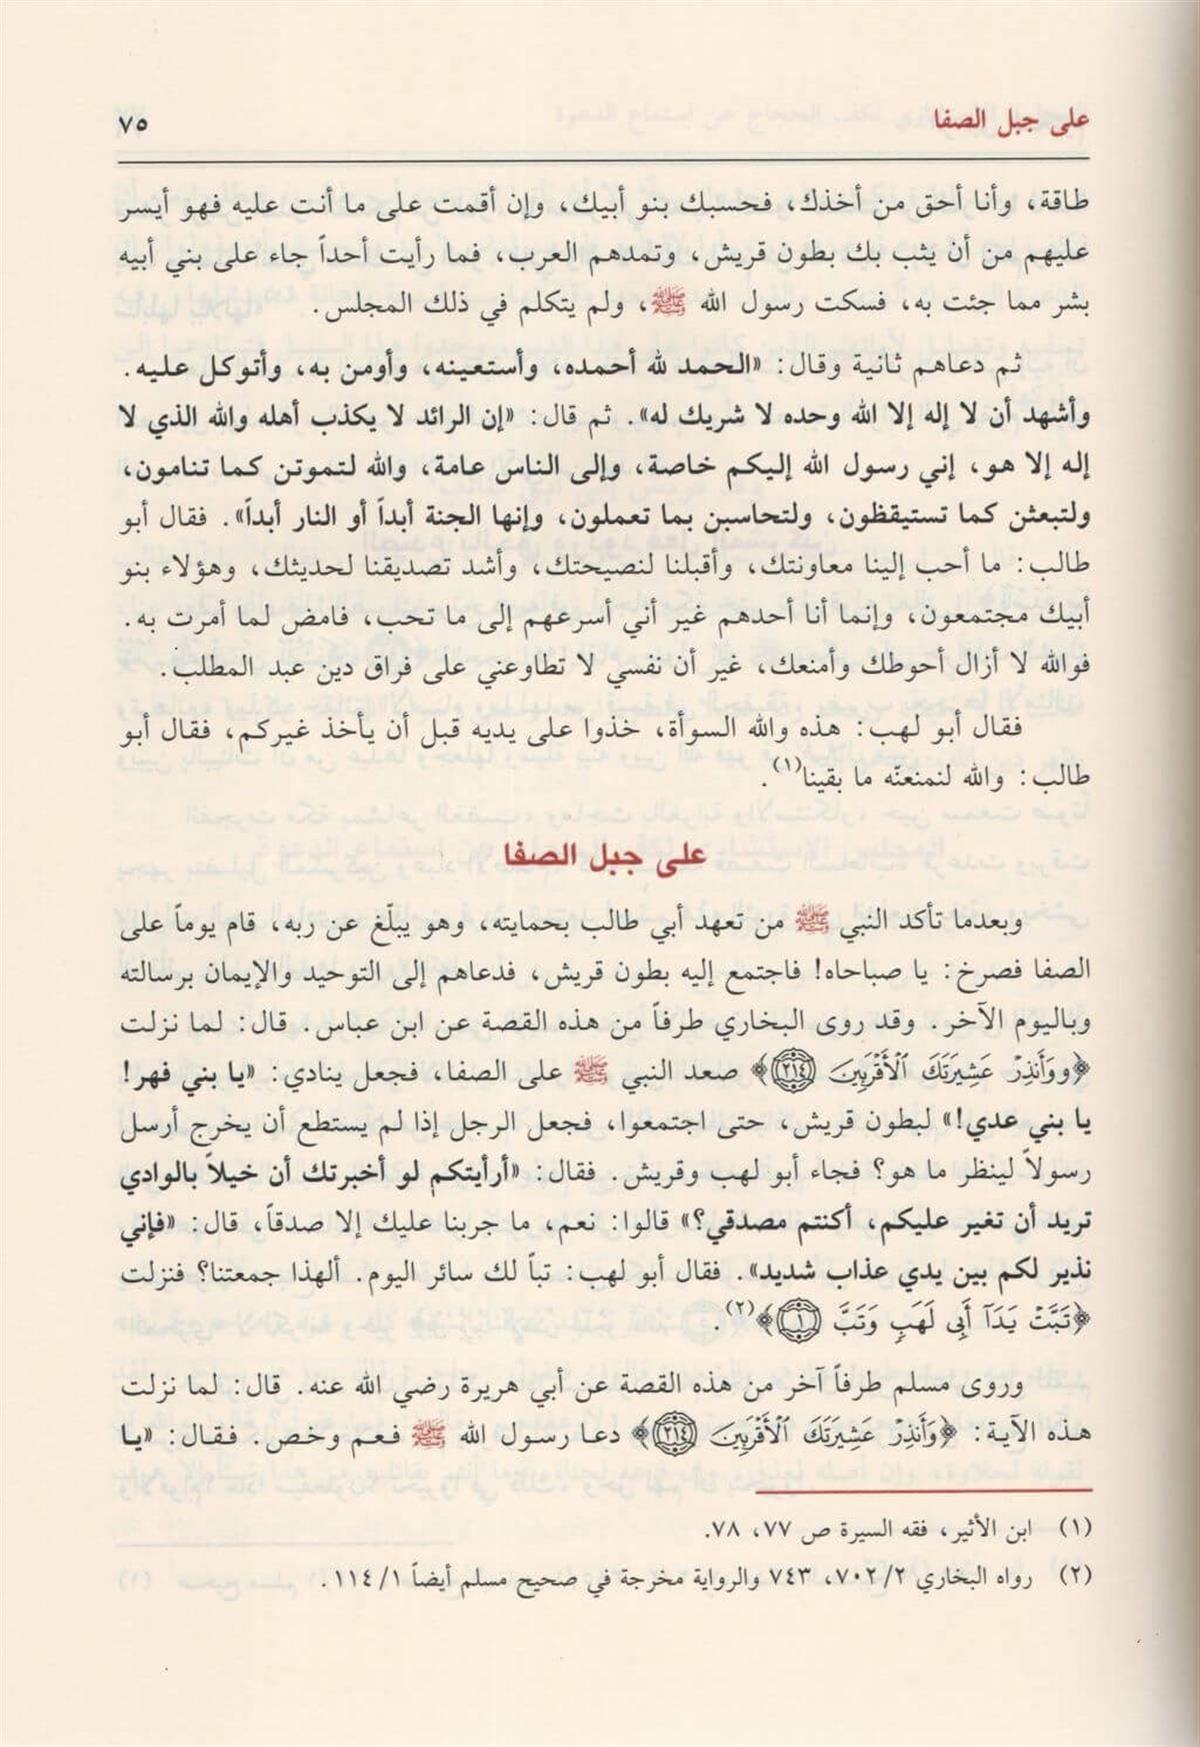 على جبل الصفا ٧٥
طاقة، وأنا أحق من أخذك، فحسبك بنو أبيك، وإن أقمت على ما أنت عليه فهو أيسر
عليهم من أن يثب بك بطون قريش، وتمدهم العرب، فما رأيت أحداً جاء على بني أبيه
بشر مما جئت به، فسكت رسول الله ﷺ، ولم يتكلم في ذلك المجلس.
ثم دعاهم ثانية وقال: «الحمد لله أحمده، وأستعينه، وأومن به، وأتوكل عليه.
وأشهد أن لا إله إلا الله وحده لا شريك له». ثم قال: «إن الرائد لا يكذب أهله والله الذي لا
إله إلا هو، إني رسول الله إليكم خاصة، وإلى الناس عامة، والله لتموتن كما تنامون،
ولتبعثن كما تستيقظون، ولتحاسبن بما تعملون، وإنها الجنة أبداً أو النار أبداً». فقال أبو
طالب: ما أحب إلينا معاونتك، وأقبلنا لنصيحتك، وأشد تصديقنا لحديثك، وهؤلاء بنو
أبيك مجتمعون، وإنما أنا أحدهم غير أني أسرعهم إلى ما تحب، فامض لما أمرت به.
فوالله لا أزال أحوطك وأمنعك، غير أن نفسي لا تطاوعني على فراق دين عبد المطلب.
فقال أبو لهب: هذه والله السوأة، خذوا على يديه قبل أن يأخذ غيركم، فقال أبو
طالب: والله لنمنعنّه ما بقينا(١).
على جبل الصفا
وبعدما تأكد النبي ﷺ من تعهد أبي طالب بحمايته، وهو يبلّغ عن ربه، قام يوماً على
الصفا فصرخ: يا صباحاه! فاجتمع إليه بطون قريش، فدعاهم إلى التوحيد والإيمان برسالته
وباليوم الآخر. وقد روى البخاري طرفاً من هذه القصة عن ابن عباس. قال: لما نزلت
﴿ووَأَنذِرْ عَشِيرَتَكَ ٱلْأَقْرَبِينَ ٢١٤﴾ صعد النبي ﷺ على الصفا، فجعل ينادي: «يا بني فهر!
يا بني عدي!» لبطون قريش، حتى اجتمعوا، فجعل الرجل إذا لم يستطع أن يخرج أرسل
رسولاً لينظر ما هو؟ فجاء أبو لهب وقريش. فقال: «أرأيتكم لو أخبرتك أن خيلاً بالوادي
تريد أن تغير عليكم، أكنتم مصدقي؟» قالوا: نعم، ما جربنا عليك إلا صدقاً، قال: «فإني
نذير لكم بين يدي عذاب شديد». فقال أبو لهب: تباً لك سائر اليوم. ألهذا جمعتنا؟ فنزلت
﴿تَبَّتْ يَدَآ أَبِى لَهَبٍ وَتَبَّ ١﴾(٢).
وروى مسلم طرفاً آخر من هذه القصة عن أبي هريرة رضي الله عنه. قال: لما نزلت
هذه الآية: ﴿وَأَنذِرْ عَشِيرَتَكَ ٱلْأَقْرَبِينَ ٢١٤﴾ دعا رسول الله ﷺ فعم وخص. فقال: «يا
(١) ابن الأثير، فقه السيرة ص ٧٧، ٧٨.
(٢) رواه البخاري ٧٠٢/٢، ٧٤٣ والرواية مخرجة في صحيح مسلم أيضاً ١١٤/١.